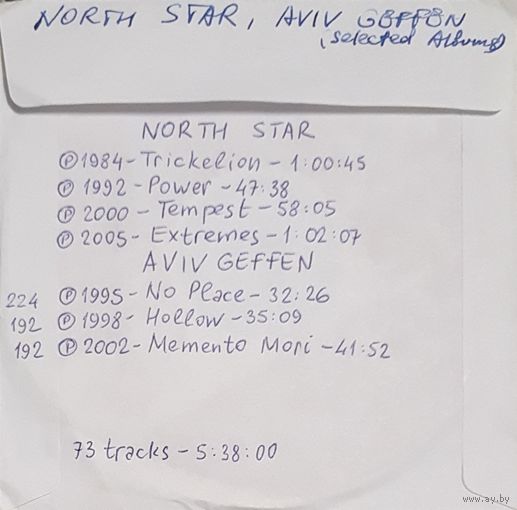 NORTH STAR, AVIV GEFFEN
(selected Albums)
NORTH STAR
Ⓟ1984-Trickelion - 1:00:45
Ⓟ 1992-Power - 47:38
Ⓟ 2000 - Tempest - 58:05
Ⓟ 2005- Extremes - 1:02:07
AVIV GEFFEN
224 Ⓟ1995- No Place - 32:26
192 Ⓟ1998- Hollow - 35:09
192 Ⓟ 2002- Memento Mori - 41:52
73 tracks - 5:38:00
www.ay.by